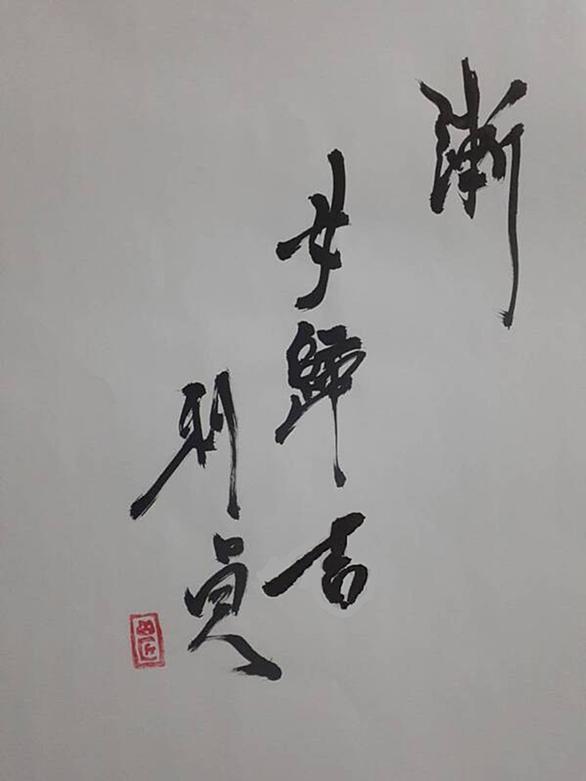 漸
女歸吉
利貞